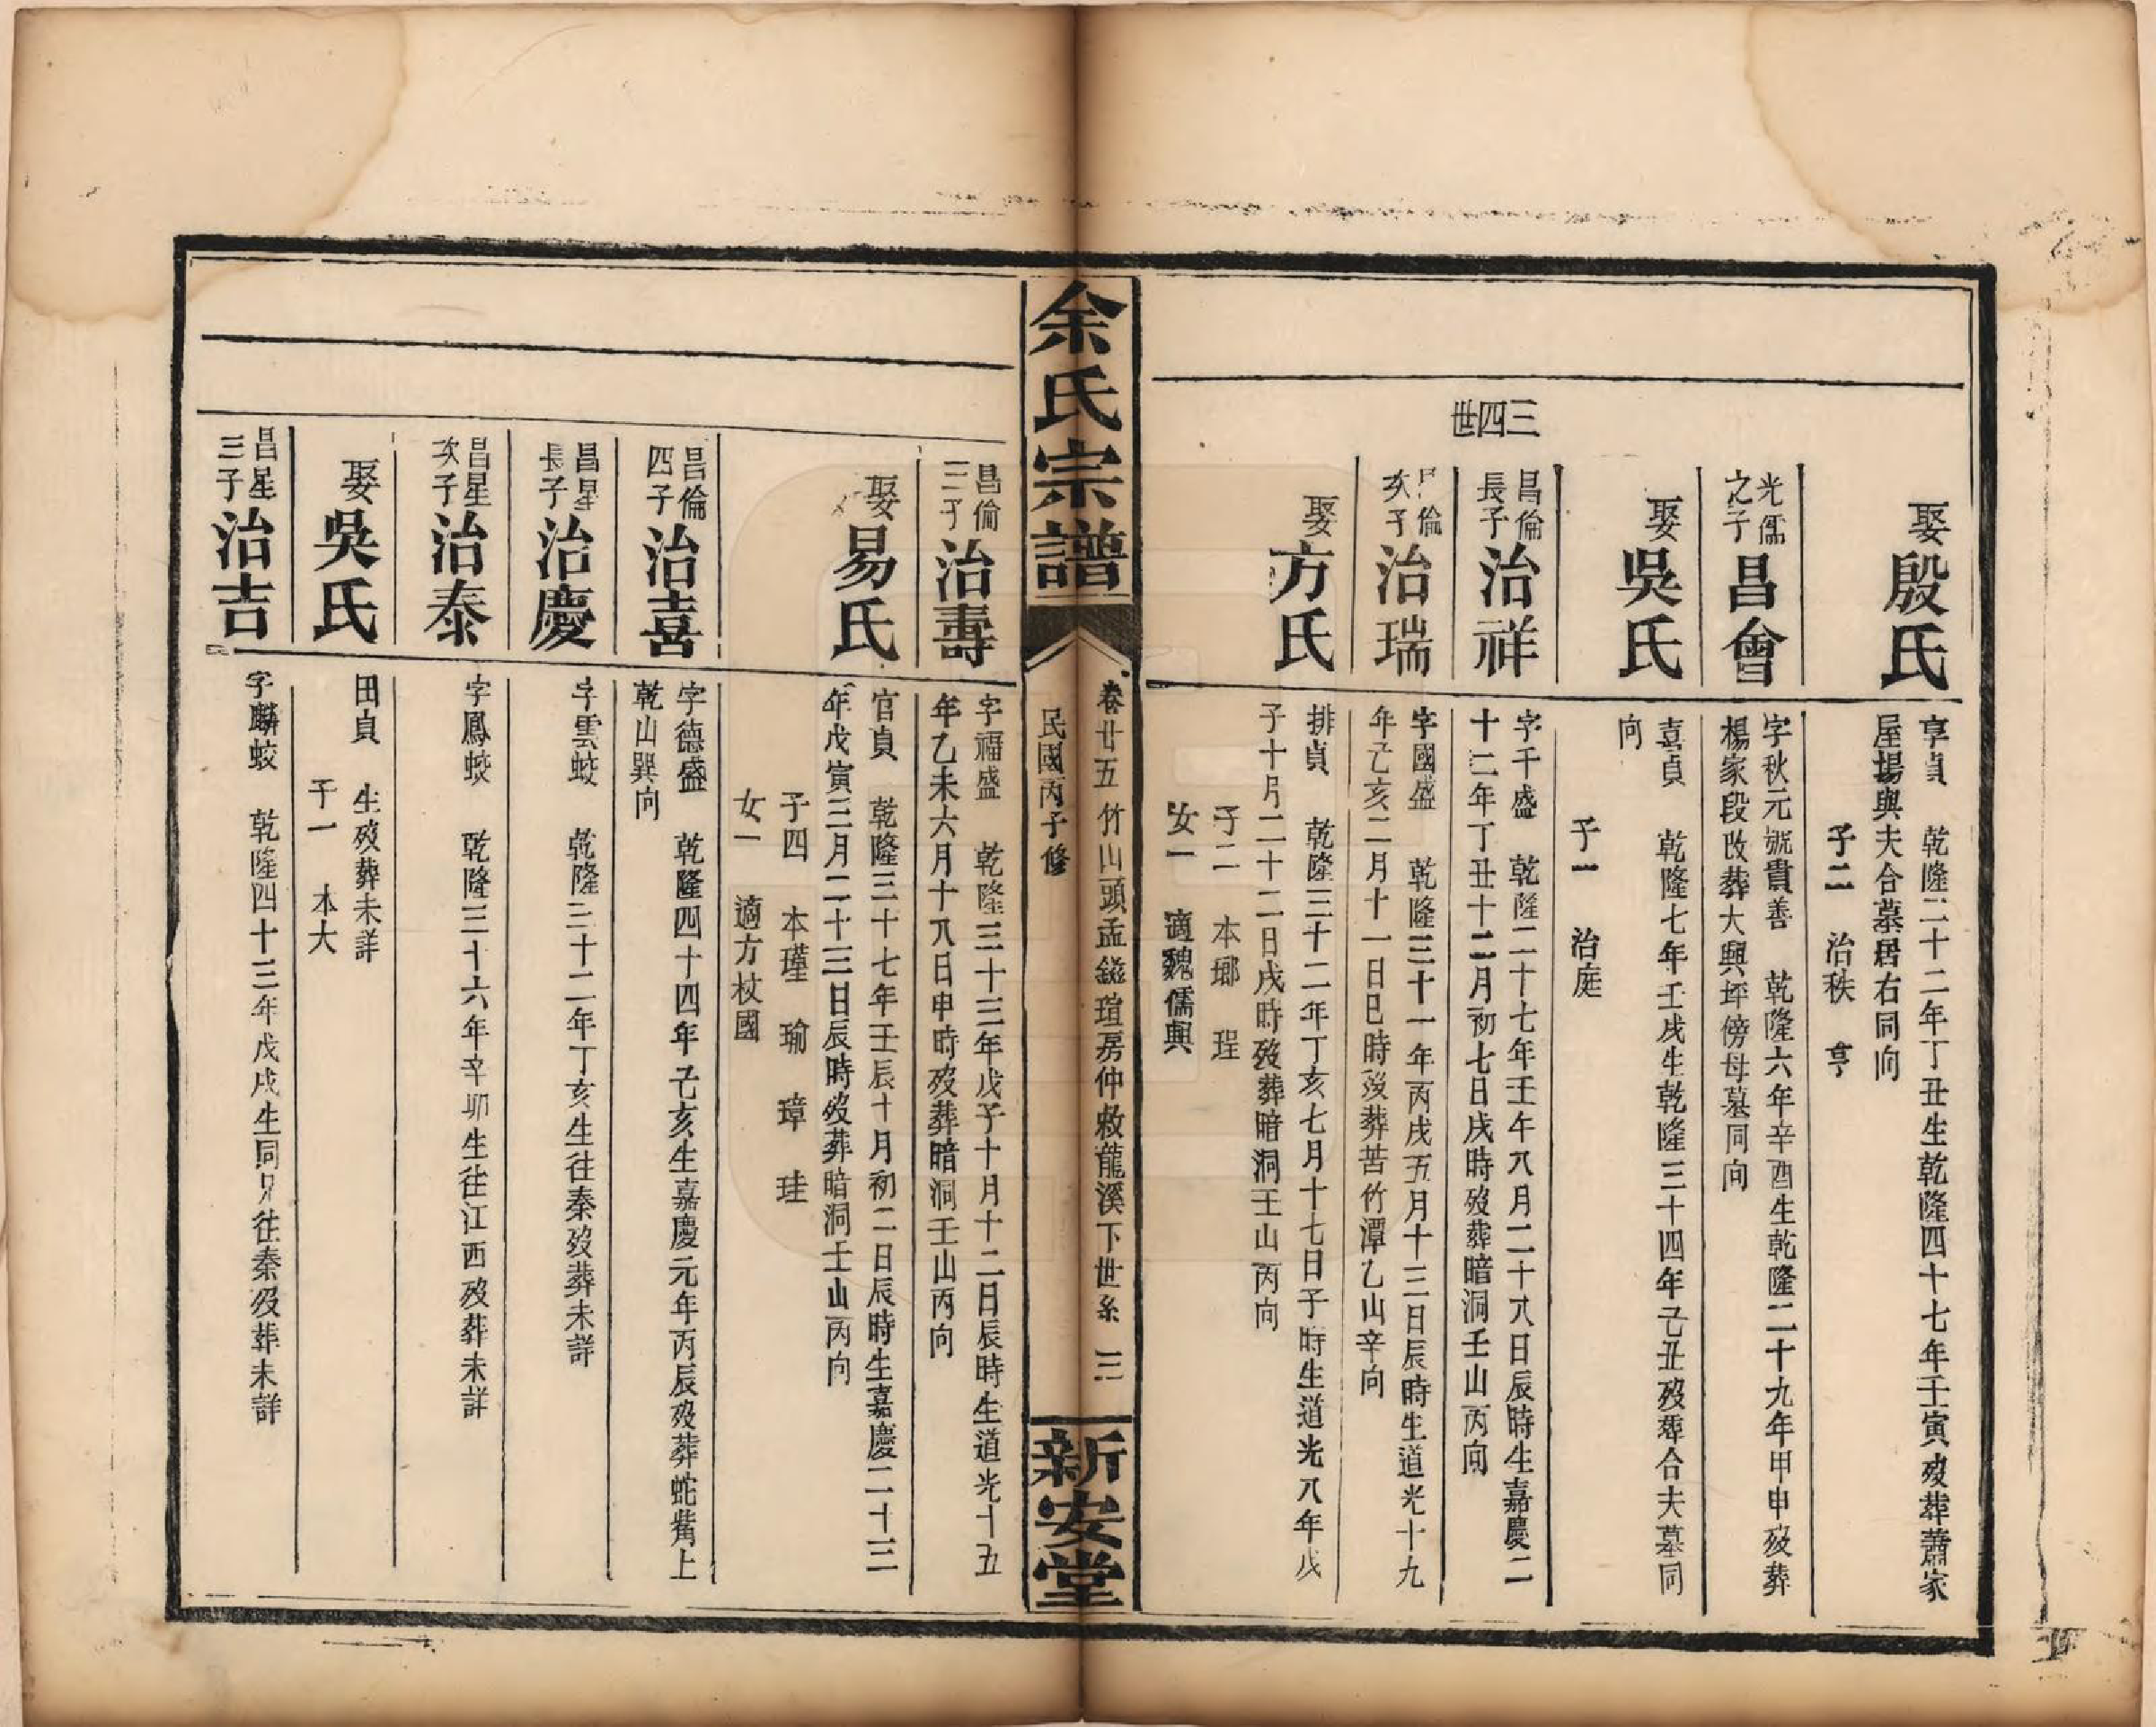 娶殷氏
享貞 乾隆二十二年丁丑生乾隆四十七年壬寅歿葬蕭家
屋場與夫合墓居右同向
子二 治秩 亨
光儒
之子
昌會
字秋元號貴善 乾隆六年辛酉生乾隆二十九年甲申歿葬
楊家段改葬大興坪傍母墓同向
娶吳氏
喜貞 乾隆七年壬戌生乾隆三十四年己丑歿葬合夫墓同
向
子一 治庭
三四世
昌倫
長子
治祥
字千盛 乾隆二十七年壬午八月二十八日辰時生嘉慶二
十二年丁丑十二月初七日戌時歿葬暗洞壬山丙向
昌倫
次子
治瑞
字國盛 乾隆三十一年丙戌五月十三日辰時生道光十九
年己亥二月十一日巳時歿葬苦竹潭乙山辛向
娶方氏
排貞 乾隆三十二年丁亥七月十七日子時生道光八年戊
子十月二十二日戌時歿葬暗洞壬山丙向
子二 本瑯 珵
女一 適魏儒興
余氏宗譜
卷廿五 竹山頭孟鎰瑄房仲敕龍溪下世系 三
民國丙子修
新安堂
昌倫
三子
治壽
字福盛 乾隆三十三年戊子十月十二日辰時生道光十五
年乙未六月十八日申時歿葬暗洞壬山丙向
娶易氏
官貞 乾隆三十七年壬辰十月初二日辰時生嘉慶二十三
年戊寅三月二十三日辰時歿葬暗洞壬山丙向
子四 本瑾 瑜 璋 珪
女一 適方杖國
昌倫
四子
治喜
字德盛 乾隆四十四年己亥生嘉慶元年丙辰歿葬蛇觜上
乾山巽向
昌星
長子
治慶
字雲蛟 乾隆三十二年丁亥生往秦歿葬未詳
昌星
次子
治泰
字鳳蛟 乾隆三十六年辛卯生往江西歿葬未詳
娶吳氏
田貞 生歿葬未詳
子一 本大
昌星
三子
治吉
字麟蛟 乾隆四十三年戊戌生同兄往秦歿葬未詳